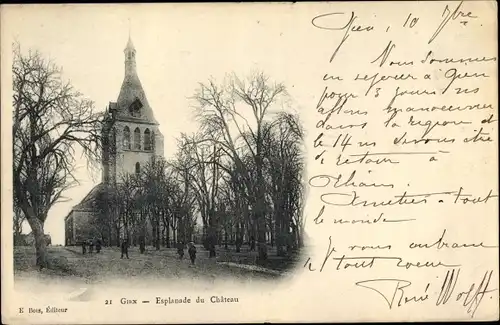 Gien, 10 7bre
Nous sommes
en repos à Gien
pour 3 jours et
allons manoeuvrer
dans la région
le 14
retour à
Orléans.
Amitiés à tout
le monde
Je vous embrasse
tout coeur
René Wolff
21 GIEN — Esplanade du Château
E Bois, Éditeur